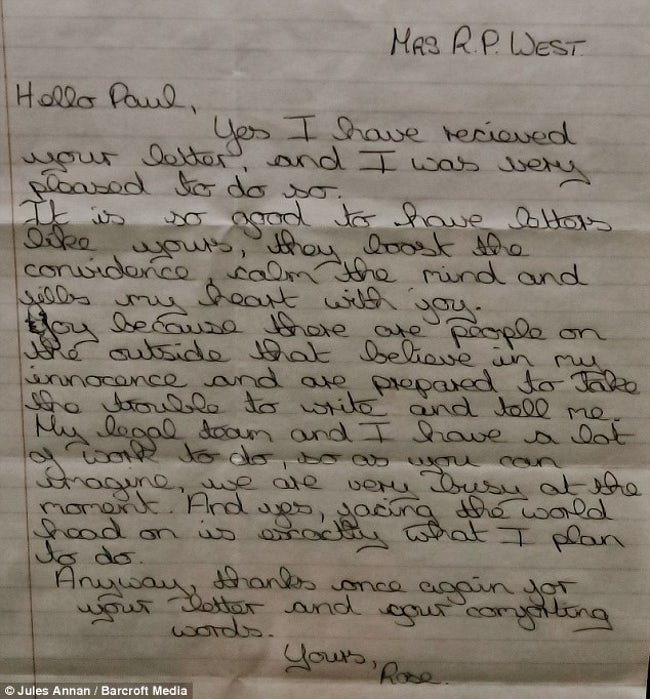 MRS R.P. WEST.
Hello Paul,
Yes I have recieved
your letter, and I was very
pleased to do so.
It is so good to have letters
like yours, they boost the
convidence, calm the mind and
fills my heart with joy.
Joy because there are people on
the outside that believe in my
innocence and are prepared to take
the trouble to write and tell me.
My legal team and I have a lot
of work to do, so as you can
imagine, we are very busy at the
moment. And yes, facing the world
head on is exactly what I plan
to do.
Anyway, thanks once again for
your letter and your comforting
words.
Yours,
Rose.
© Jules Annan / Barcroft Media